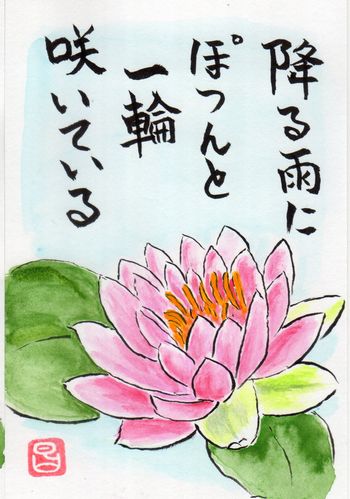 降る雨に
ぽつんと
一輪
咲いている